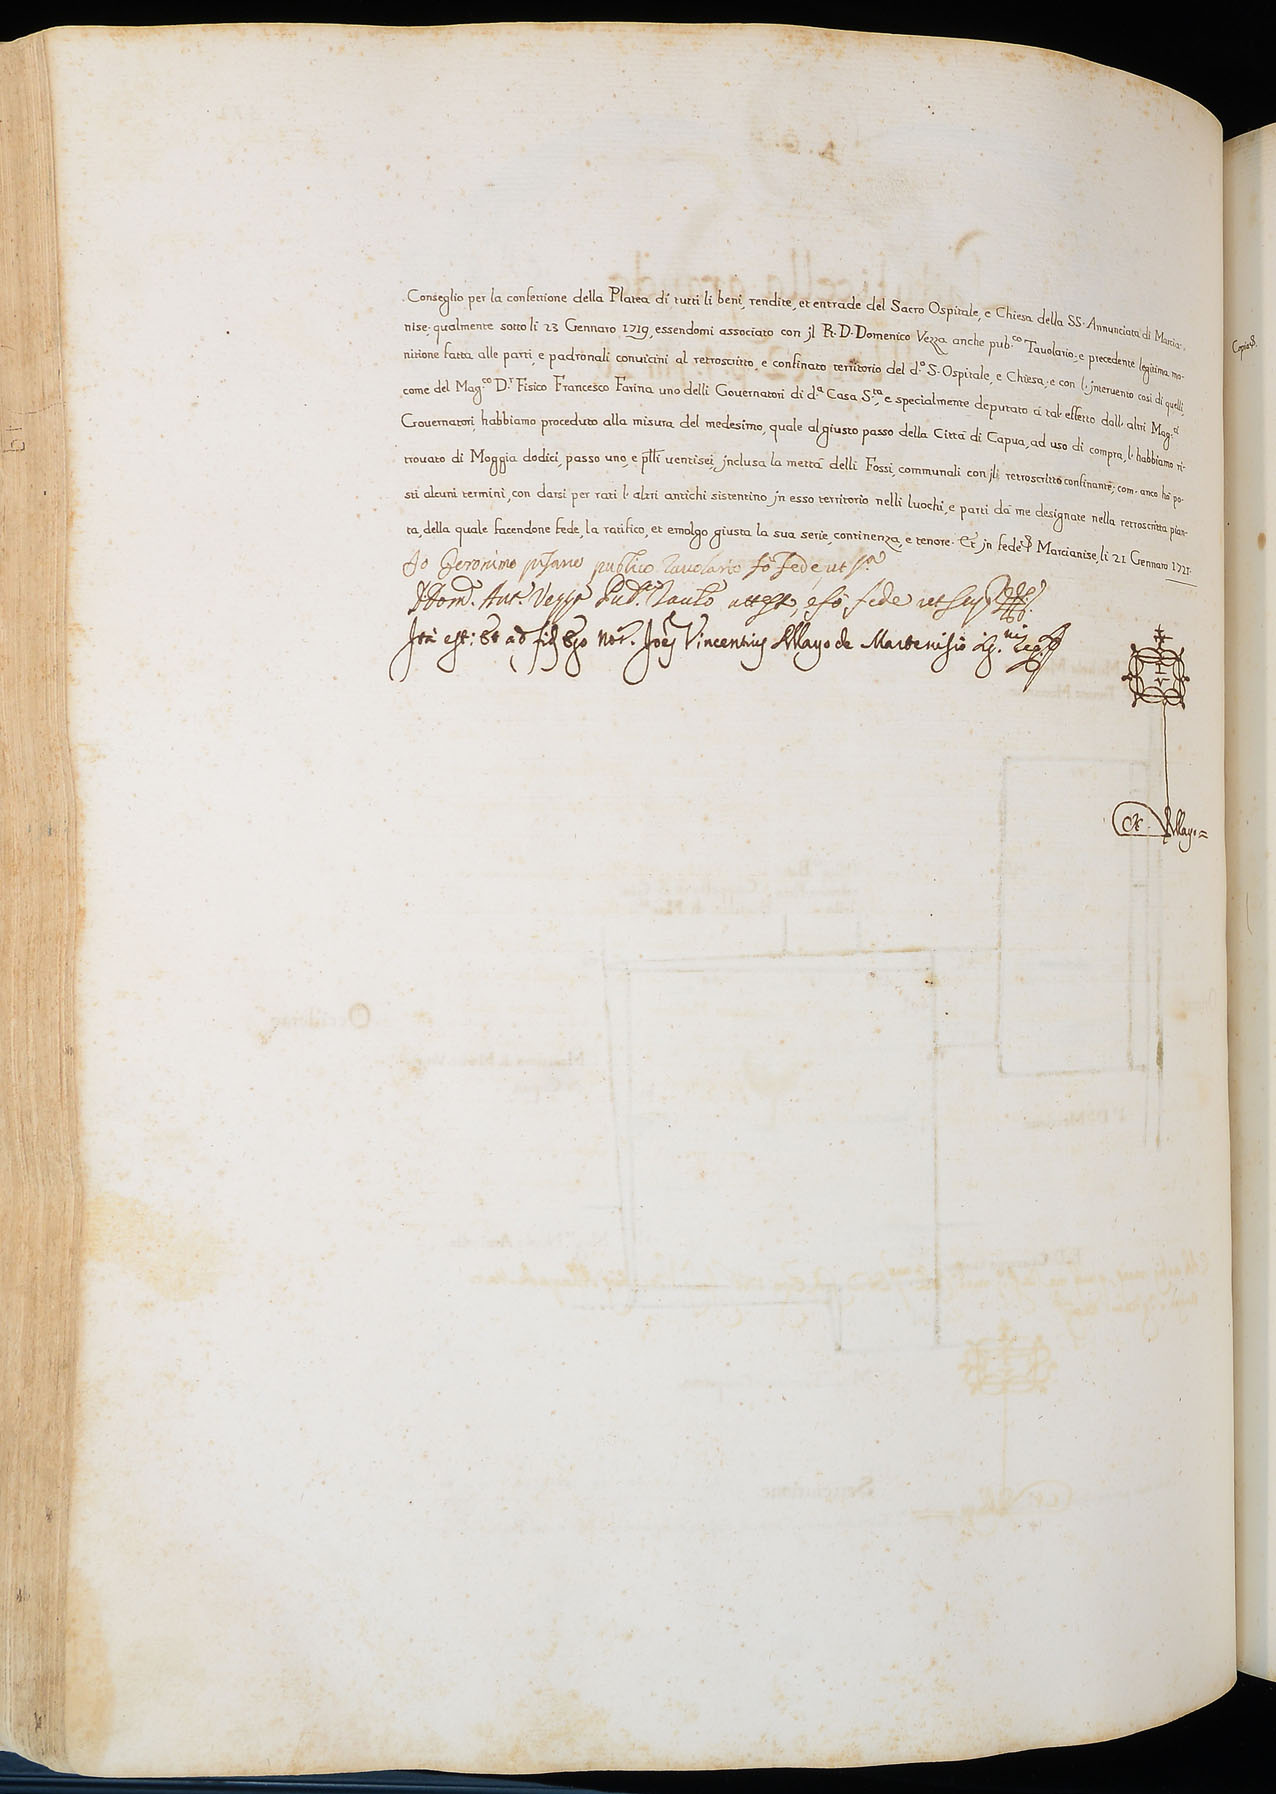 Conseglio per la confettione della Platea di tutti li beni, rendite, et entrade del Sacro Ospitale, e Chiesa della SS. Annunciata di Marcia-
nise; qualmente sotto li 23 Gennaro 1719, essendomi associato con jl R. D. Domenico Vezza anche pub.co Tavolario, e precedente legitima mo-
nitione fatta alle parti, e padronali convicini al retroscritto, e confinato territorio del d.o S. Ospitale, e Chiesa, e con l' jntervento così di quelli,
come del Mag.co D.r Fisico Francesco Farina uno delli Governatori di d.a Casa S.ta, e specialmente deputato a tal' effetto dall' altri Mag.ci
Governatori, habbiamo proceduto alla misura del medesimo, quale al giusto passo della Città di Capua, ad uso di compra, l' habbiamo ri-
trovato di Moggia dodici, passo uno, e p̃lli ventisei, jnclusa la mettà delli Fossi, communali con jl retroscritto confinante; com' anco hò po-
sti alcuni termini, con darsi per rati l' altri antichi sistentino jn esso territorio nelli luochi, e parti dà me designate nella retroscritta pian-
ta, della quale facendone fede, la ratifico, et emolgo giusta la sua serie, continenza, e tenore. Et jn fede Marcianise, li 21 Gennaro 1721
Jo Geronimo publico Tavolario fò fede, ut s.a
D. Dom.o Ant.o Vezza Pub.co attesto, e fò fede ut
Ità est: Et ad fid. Ego Not. Joes Vincentius Mayo de Martenisio
Mayo =
Copia